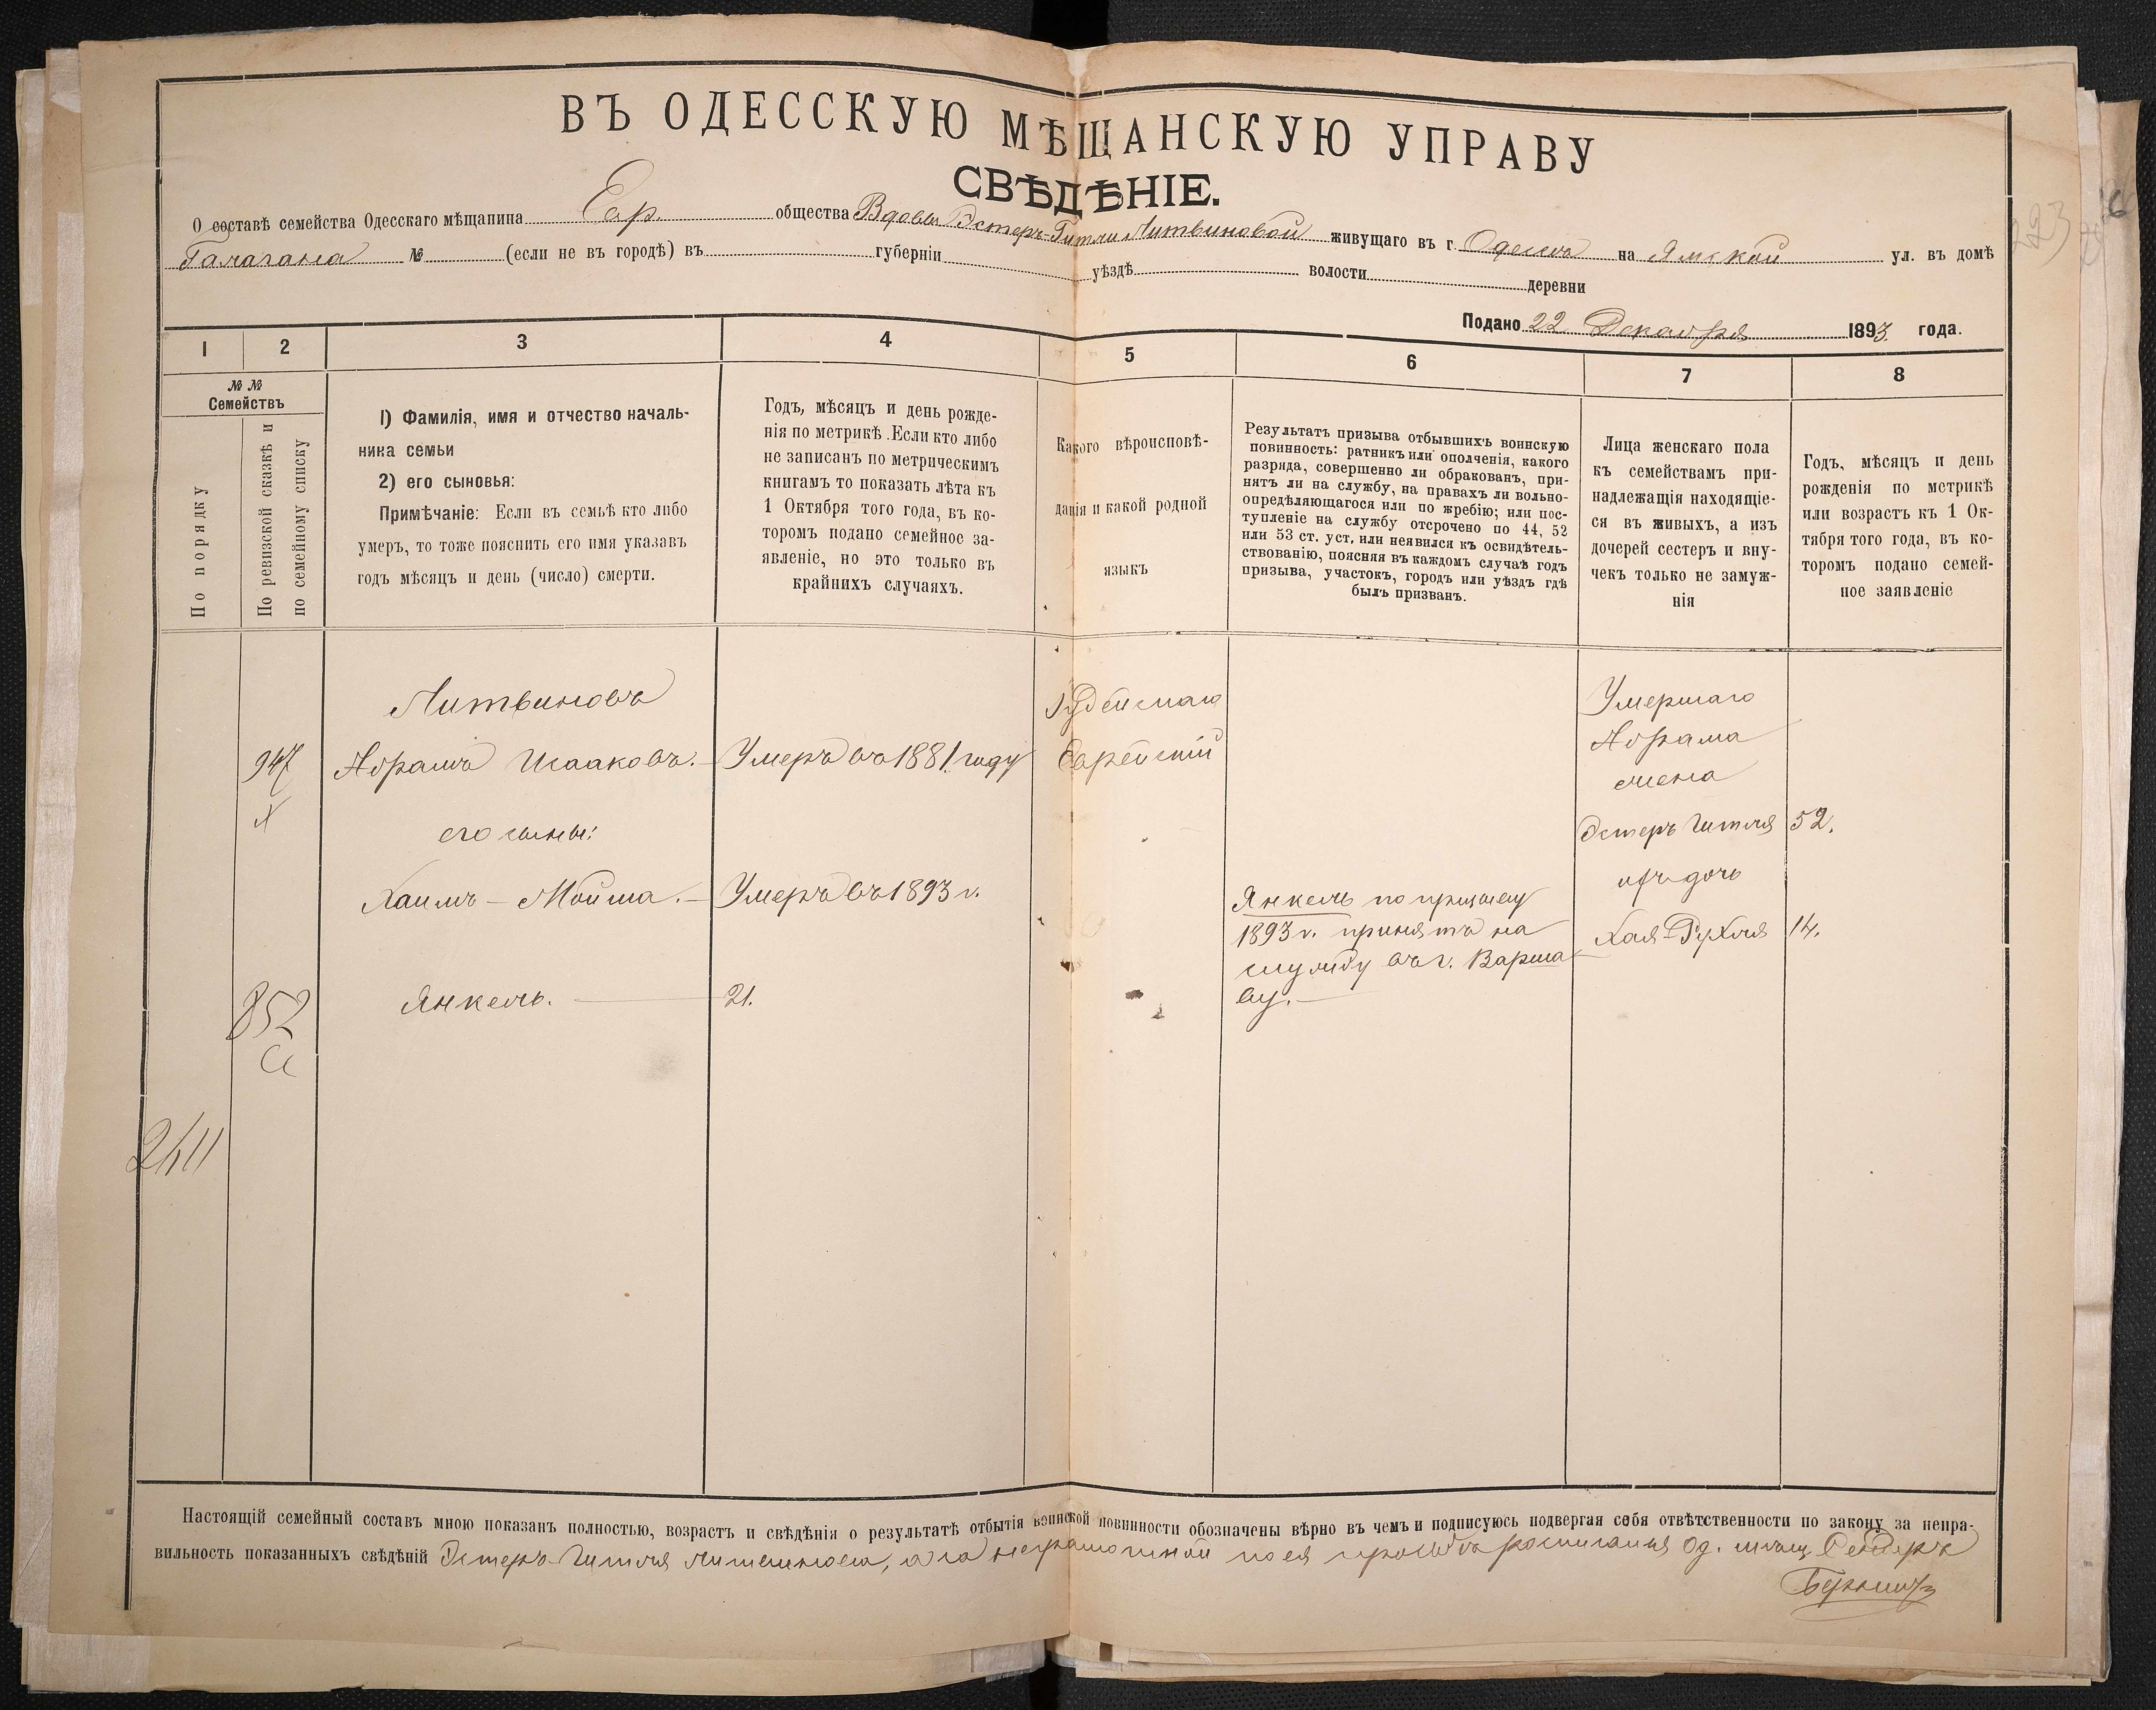 ВЪ ОДЕССКУЮ МѢЩАНСКУЮ УПРАВУ
СВѢДѢНІЕ.
О составѣ семейства Одесскаго мѣщанина Евр. общества Вдовы Эстеръ-Гитли Литвиновой живущаго въ г. Одессѣ на Ямской ул. въ домѣ
Галагана № (если не въ городѣ) въ губерніи уѣздѣ волости деревни
Подано 22 Декабря 1893 года.
1 2 3 4 5 6 7 8
№ №
Семействъ
По порядку
По ревизской сказкѣ и
по семейному списку
1) Фамилія, имя и отчество началь-
ника семьи
2) его сыновья:
Примѣчаніе: Если въ семьѣ кто либо
умеръ, то тоже пояснить его имя указавъ
годъ мѣсяцъ и день (число) смерти.
Годъ, мѣсяцъ и день рожде-
нія по метрикѣ. Если кто либо
не записанъ по метрическимъ
книгамъ то показать лѣта къ
1 Октября того года, въ ко-
торомъ подано семейное за-
явленіе, но это только въ
крайнихъ случаяхъ.
Какого вѣроисповѣ-
данія и какой родной
языкъ
Результатъ призыва отбывшихъ воинскую
повинность: ратникъ или ополченія, какого
разряда, совершенно ли обракованъ, при-
нятъ ли на службу, на правахъ ли вольно-
опредѣляющагося или по жребію; или пос-
тупленіе на службу отсрочено по 44, 52
или 53 ст. уст. или неявился къ освидѣтель-
ствованію, поясняя въ каждомъ случаѣ годъ
призыва, участокъ, городъ или уѣздъ гдѣ
былъ призванъ.
Лица женскаго пола
къ семействамъ при-
надлежащія находящіе-
ся въ живыхъ, а изъ
дочерей сестеръ и вну-
чекъ только не замуж-
нія
Годъ, мѣсяцъ и день
рожденія по метрикѣ
или возрастъ къ 1 Ок-
тября того года, въ ко-
торомъ подано семей-
ное заявленіе
Литвиновъ
947 Абрамъ Исааковъ. Умеръ въ 1881 году
его сыны:
Хаимъ-Мойша. Умеръ въ 1893 г.
852 Янкель. 21.
2411
Іудейскаго
Еврейскій
Янкель по призыву
1893 г. принятъ на
службу въ г. Варша
ву.
Умершаго
Абрама
жена
Эстеръ Гитля 52.
ихъ дочь
Хая-Рухля 14.
Настоящій семейный составъ мною показанъ полностью, возрастъ и свѣдѣнія о результатѣ отбытія воинской повинности обозначены вѣрно въ чемъ и подписуюсь подвергая себя отвѣтственности по закону за непра-
вильность показанныхъ свѣдѣній Эстеръ-Гитля Литвинова, а за неграмотной по ея просьбѣ росписался Од. мѣщ.
223